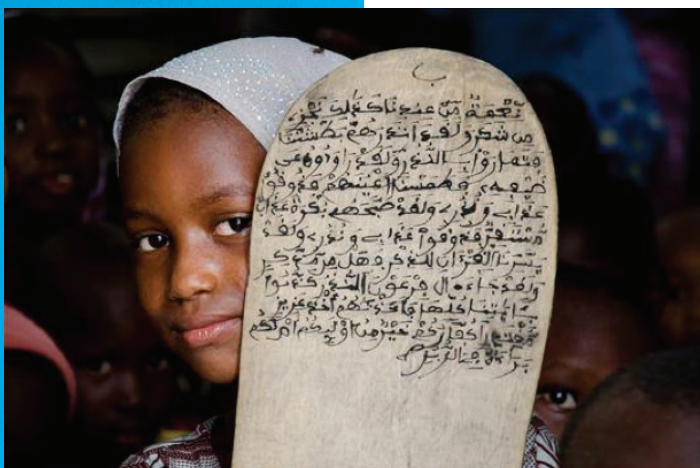 ب
نعمة من عندنا كذلك نجزي
من شكر ولقد انذرهم بطشتنا
فتماروا بالنذر ولقد راودوه عن
ضيفه فطمسنا اعينهم فذوقوا
عذابي ونذر ولقد صبحهم بكرة عذاب
مستقر فذوقوا عذابي ونذر ولقد
يسرنا القران للذكر فهل من مدكر
ولقد جاء ال فرعون النذر كذبوا
باياتنا كلها فاخذنهم اخذ عزيز
مقتدر اكفاركم خير من اوليكم ام لكم
براءة في الزبر